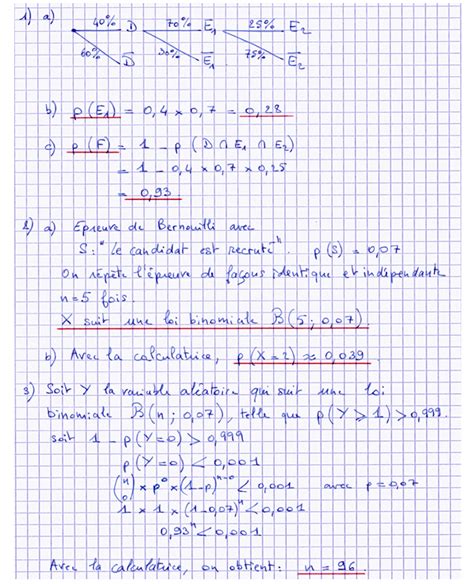 1) a) 40% D 70% E₁ 25% E₂
60% D̅ 30% E̅₁ 75% E̅₂
b) p(E₁) = 0,4 × 0,7 = 0,28
c) p(F) = 1 - p(D ∩ E₁ ∩ E₂)
= 1 - 0,4 × 0,7 × 0,25
= 0,93
2) a) Epreuve de Bernouilli avec
S: "le candidat est recruté". p(S) = 0,07
On répète l'épreuve de façons identique et indépendante
n=5 fois.
X suit une loi binomiale B(5; 0,07)
b) Avec la calculatrice, p(X=2) ≈ 0,039
3) Soit Y la variable aléatoire qui suit une loi
binomiale B(n; 0,07), telle que p(Y ⩾ 1) > 0,999.
soit 1 - p(Y=0) > 0,999
p(Y=0) < 0,001
(n 0) × p⁰ × (1-p)ⁿ⁻⁰ < 0,001 avec p=0,07
1 × 1 × (1-0,07)ⁿ < 0,001
0,93ⁿ < 0,001
Avec la calculatrice, on obtient: n = 96.